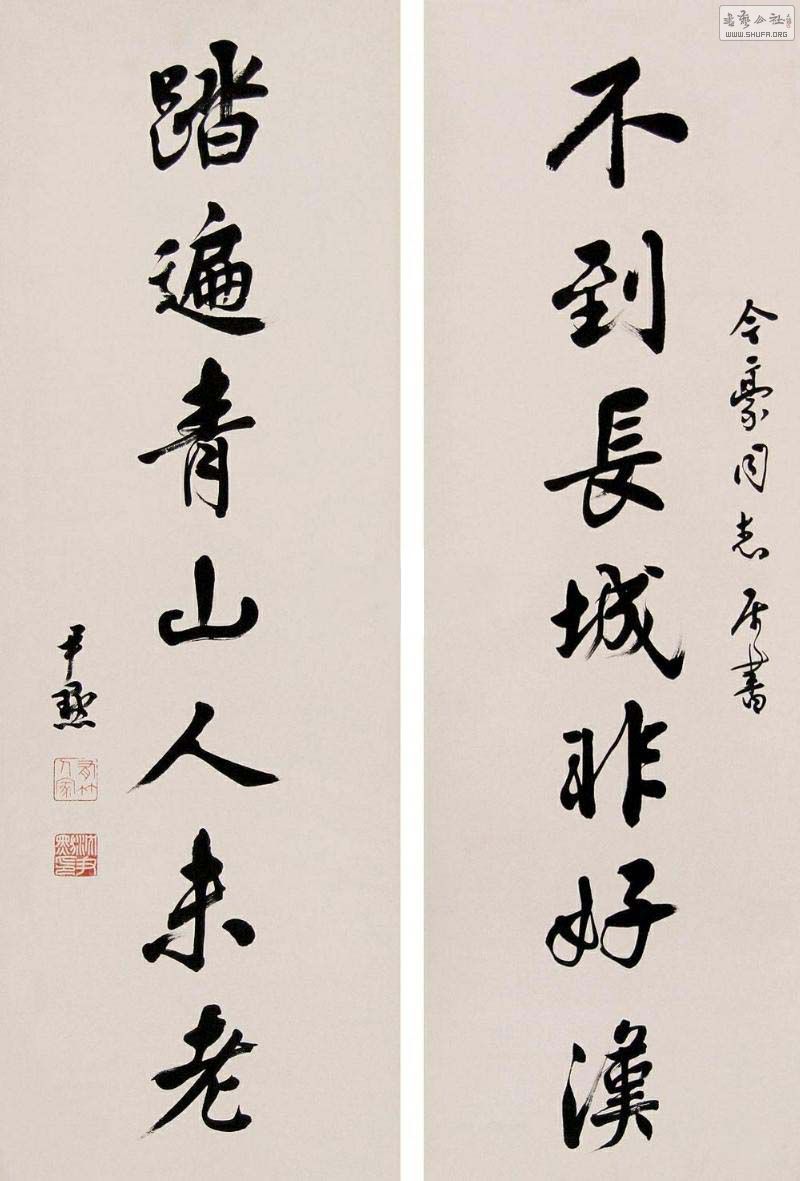 不到長城非好漢
令豪同志屬書
踏遍青山人未老
尹默
WWW.SHUFA.ORG